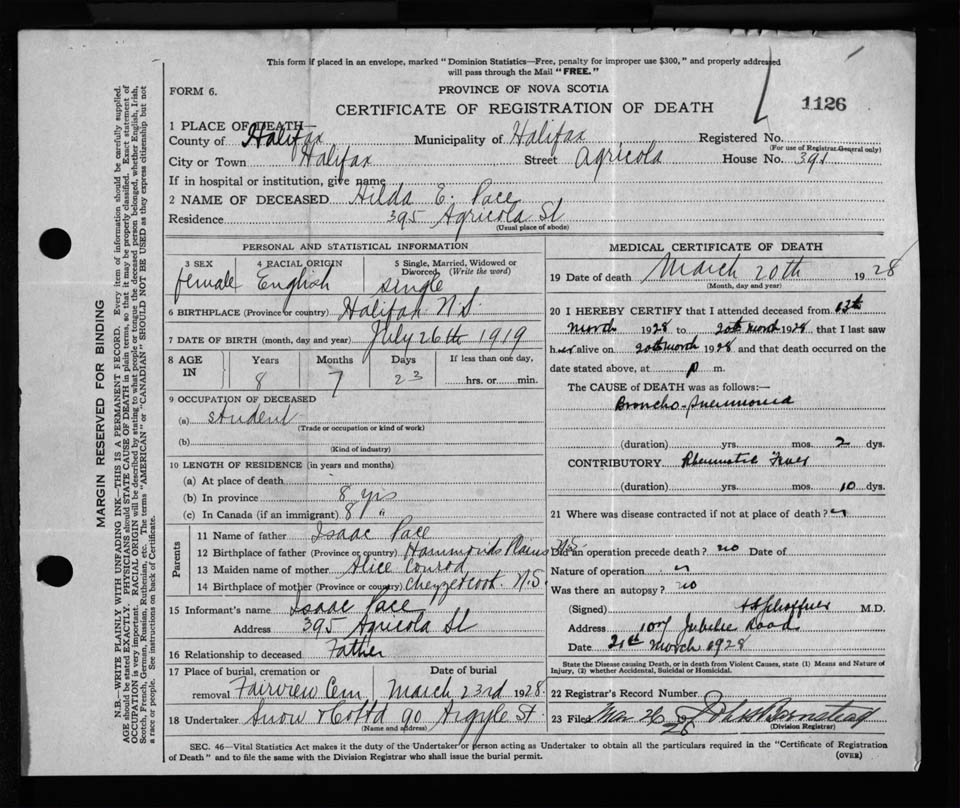 This form if placed in an envelope, marked "Dominion Statistics—Free, penalty for improper use $300," and properly addressed
will pass through the Mail "FREE."
FORM 6.
PROVINCE OF NOVA SCOTIA
CERTIFICATE OF REGISTRATION OF DEATH
1126
1 PLACE OF DEATH—
County of Halifax Municipality of Halifax Registered No.
(For use of Registrar General only)
City or Town Halifax Street Agricola House No. 395
If in hospital or institution, give name
2 NAME OF DECEASED Hilda E. Pace
Residence 395 Agricola St
(Usual place of abode)
PERSONAL AND STATISTICAL INFORMATION
3 SEX 4 RACIAL ORIGIN 5 Single, Married, Widowed or
Divorced (Write the word)
female English single
6 BIRTHPLACE (Province or country) Halifax N.S.
7 DATE OF BIRTH (month, day and year) July 26th 1919
8 AGE IN Years Months Days If less than one day,
8 7 23 hrs. or min.
9 OCCUPATION OF DECEASED
(a) student
(Trade or occupation or kind of work)
(b)
(Kind of industry)
10 LENGTH OF RESIDENCE (in years and months)
(a) At place of death
(b) In province 8 yrs
(c) In Canada (if an immigrant) 8 "
Parents
11 Name of father Isaac Pace
12 Birthplace of father (Province or country) Hammonds Plains N.S.
13 Maiden name of mother Alice Conrod
14 Birthplace of mother (Province or country) Chezzetcook N.S.
15 Informant's name Isaac Pace
Address 395 Agricola St
16 Relationship to deceased Father
17 Place of burial, cremation or Date of burial
removal Fairview Cem March 23rd 1928
18 Undertaker Snow & Co Ltd 90 Argyle St
(Name and address)
MEDICAL CERTIFICATE OF DEATH
19 Date of death March 20th 1928
(Month, day and year)
20 I HEREBY CERTIFY that I attended deceased from 13th
March 1928 to 20th March 1928, that I last saw
her alive on 20th March 1928 and that death occurred on the
date stated above, at p m.
The CAUSE of DEATH was as follows:—
Broncho-Pneumonia
(duration) yrs. mos. 2 dys.
CONTRIBUTORY Rheumatic Fever
(duration) yrs. mos. 10 dys.
21 Where was disease contracted if not at place of death?
Did an operation precede death? no Date of
Nature of operation
Was there an autopsy? no
(Signed) M.D.
Address 107 Jubilee Road
Date 21st March 1928
State the Disease causing Death, or in death from Violent Causes, state (1) Means and Nature of
Injury, (2) whether Accidental, Suicidal or Homicidal.
22 Registrar's Record Number
23 Filed Mar 26 28
(Division Registrar)
SEC. 46—Vital Statistics Act makes it the duty of the Undertaker or person acting as Undertaker to obtain all the particulars required in the "Certificate of Registration
of Death" and to file the same with the Division Registrar who shall issue the burial permit.
(OVER)
MARGIN RESERVED FOR BINDING
N.B.—WRITE PLAINLY WITH UNFADING INK—THIS IS A PERMANENT RECORD. Every item of information should be carefully supplied.
AGE should be stated EXACTLY. PHYSICIANS should STATE CAUSE OF DEATH in plain terms, so that it may be properly classified. Exact statement of
OCCUPATION is very important. RACIAL ORIGIN will be described by stating to what people or tongue the deceased person belonged, whether English, Irish,
Scotch, French, German, Russian, Ruthenian, etc. The terms "AMERICAN" or "CANADIAN" SHOULD NOT BE USED as they express citizenship but not
a race or people. See instructions on back of Certificate.